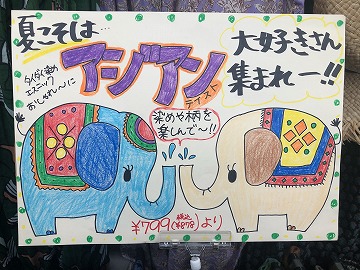 夏こそは…
アージアン
テイスト
大好きさん
集まれー!!
エスニック
おしゃれ〜に
染めや柄を
楽しんで〜!!
¥799(税込¥878)より